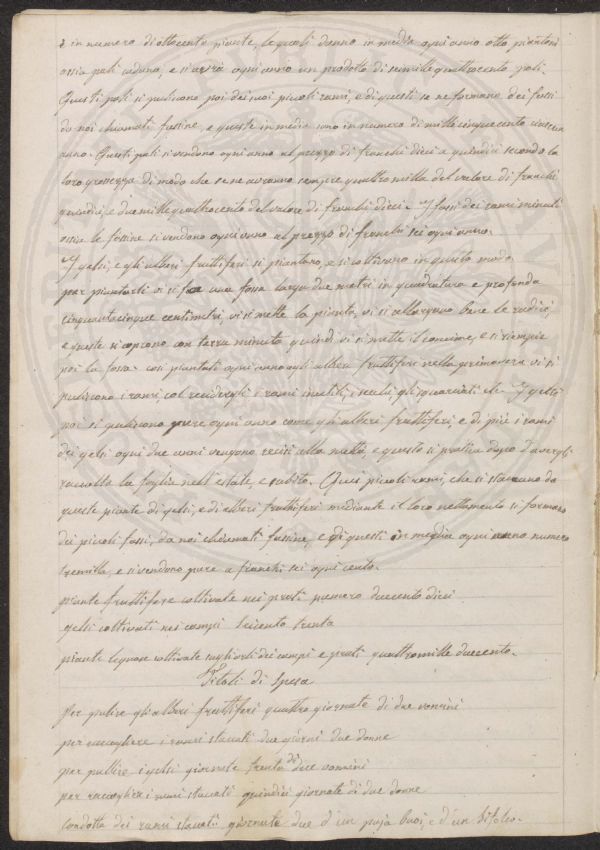 è in numero di ottocento piante, le quali danno in media ogni anno otto piantoni
ossia pali caduno, e si avrà ogni anno un prodotto di seimille quattrocento pali.
Questi pali si puliscono poi dei suoi piccoli rami, e di questi se ne formano dei fassi
da noi chiamati fassine, e queste in media sono in numero di mille cinquecento ciascun
anno. Questi pali si vendono ogni anno al prezzo di franchi dieci a quindici secondo la
loro grossezza di modo che se ne avranno sempre quattro milla del valore di franchi
quindici, e due mille quattrocento del valore di franchi dieci. I fassi dei rami minuti
ossia le fassine si vendono ogni anno al prezzo di franchi sei ogni cento.
I gelsi, e gli alberi fruttiferi si piantano, e si coltivano in questo modo
per piantarli vi si fa una fossa larga due metri in quadratura e profonda
cinquantacinque centimetri, vi si mette la pianta, vi si allargano bene le radici,
e queste si coprono con terra minuta quindi vi si mette il concime, e si riempie
poi la fossa. così piantati ogni anno agli alberi fruttiferi nella primavera vi si
puliscono i rami, col recidergli i rami inutili, i secchi, gli squarciati ec. I gelsi
poi si puliscono pure ogni anno come gli alberi fruttiferi, e di più i rami
dei gelsi ogni due anni vengono recisi alla metà e questo si pratica dopo d'avergli
raccolta la foglia nell'estate, e subito. Quei piccoli rami, che si staccano da
queste piante di gelsi, e di alberi fruttiferi mediante il loro nettamento si formano
dei piccoli fassi, da noi chiamati fassine, e di questi in media ogni anno numero
tremilla, e si vendono pure a franchi sei ogni cento.
piante fruttifere coltivate nei prati numero duecento dieci
gelsi coltivati nei campi trecento trenta
piante legnose coltivate sugli orli dei campi e prati quattromille duecento.
Titoli di Spesa
Per pulire gli alberi fruttiferi quattro giornate di due uomini
per raccogliere i rami staccati due giorni due donne
per pullire i gelsi giornate trenta di due uomini
per raccogliere i rami staccati quindici giornate di due donne
condotta dei rami staccati giornate due d'un pajo buoi, e d'un bifolco.